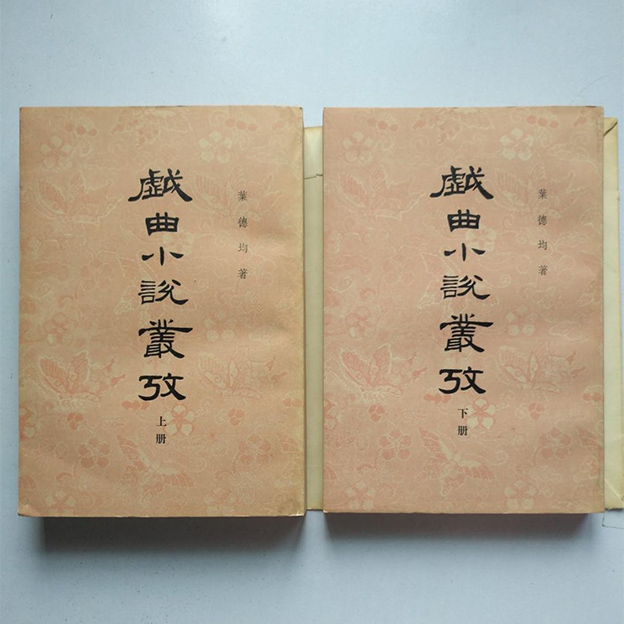 戯曲小說叢攷
上册
葉德均著
戯曲小說叢攷
下册
葉德均著